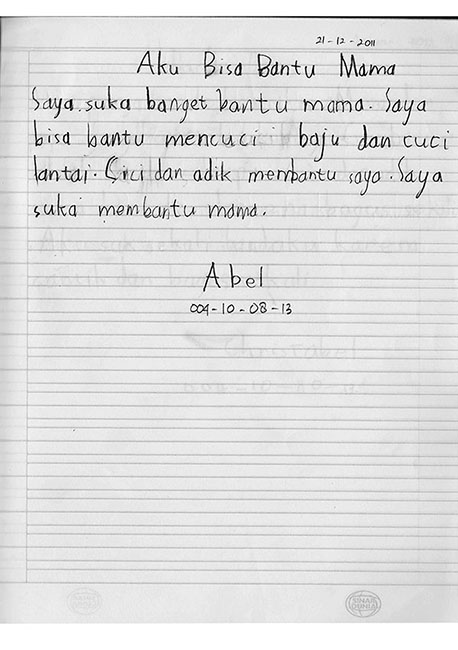 21-12-2011
Aku Bisa Bantu Mama
Saya suka banget bantu mama. Saya
bisa bantu mencuci baju dan cuci
lantai. Cici dan adik membantu saya. Saya
suka membantu mama.
Abel
004-10-08-13
SINAR DUNIA